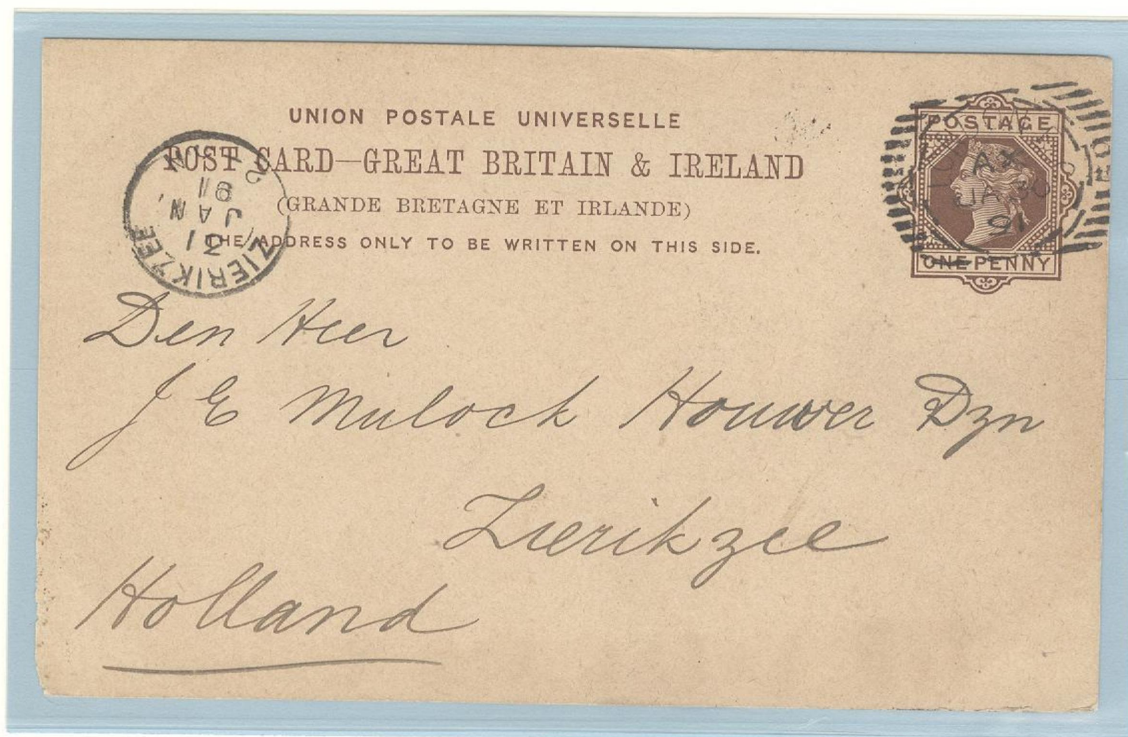 UNION POSTALE UNIVERSELLE
POST CARD—GREAT BRITAIN & IRELAND
(GRANDE BRETAGNE ET IRLANDE)
THE ADDRESS ONLY TO BE WRITTEN ON THIS SIDE.
POSTAGE
ONE PENNY
AX
JA 30
91
ZIERIKZEE
31
JAN
91
Den Heer
J E Mulock Houwer Dzn
Zierikzee
Holland